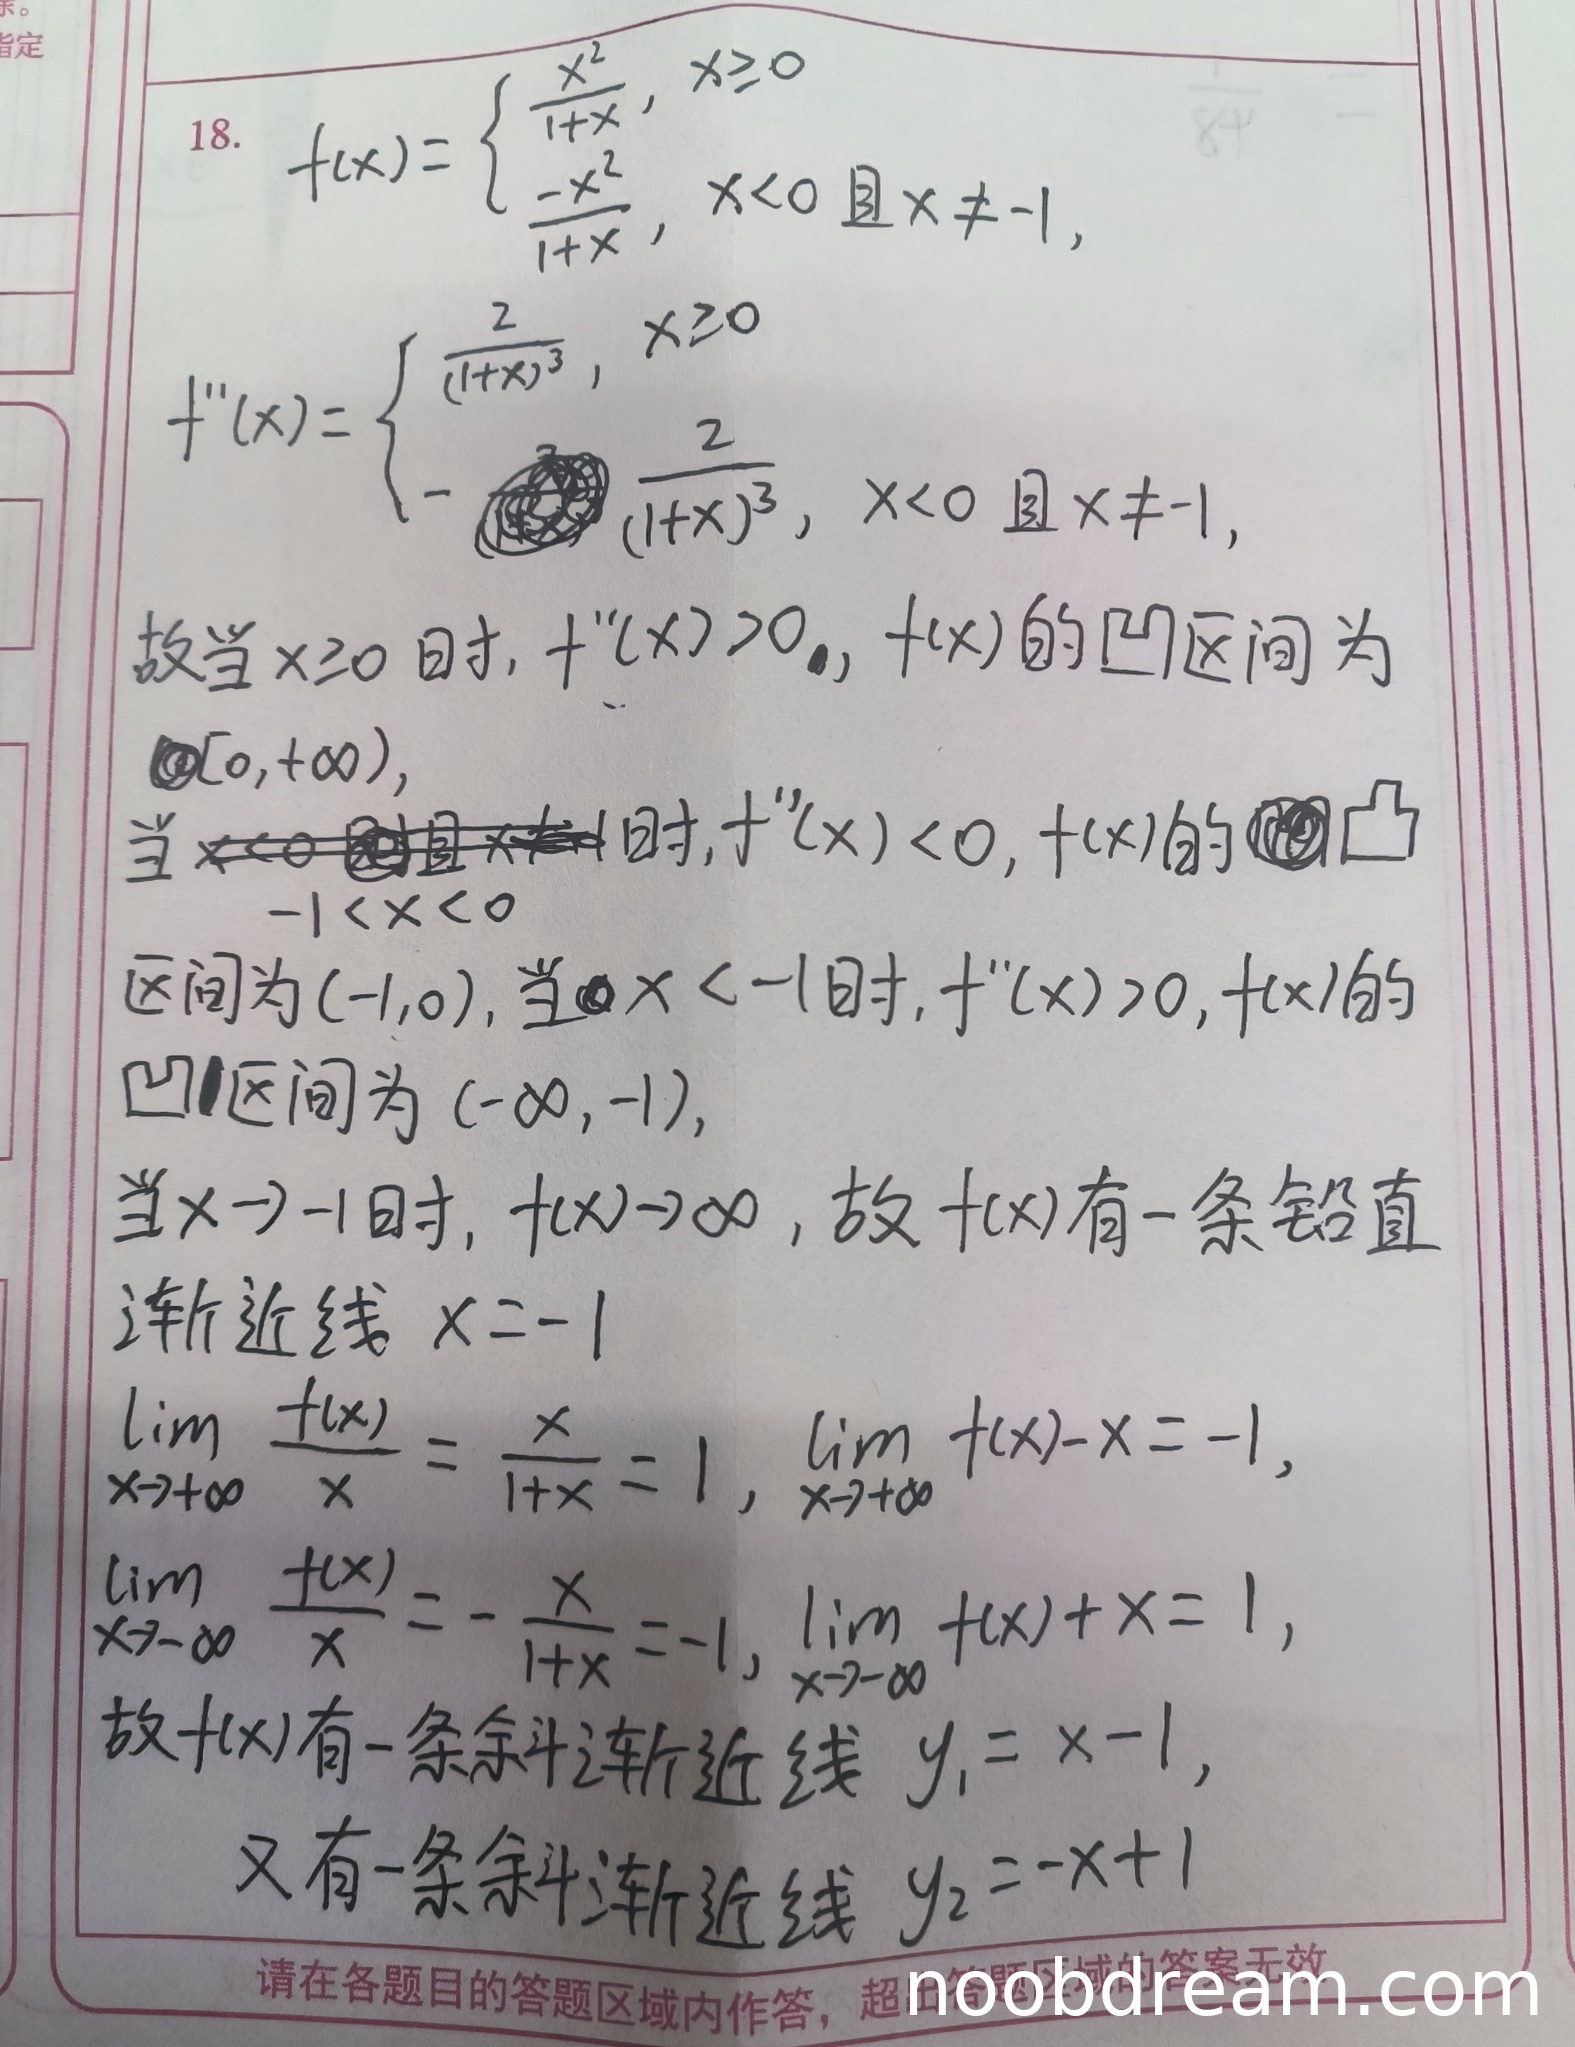 除。
指定
18. f(x) = { x²/(1+x), x≥0
-x²/(1+x), x<0 且 x≠-1,
f''(x) = { 2/(1+x)³, x≥0
- 2/(1+x)³, x<0 且 x≠-1,
故当 x≥0 时, f''(x)>0, f(x)的凹区间为
[0,+∞),
当 -1<x<0 时, f''(x)<0, f(x)的凸
区间为(-1,0), 当 x<-1时, f''(x)>0, f(x)的
凹区间为 (-∞,-1),
当x→-1时, f(x)→∞, 故 f(x)有一条铅直
渐近线 x=-1
lim x→+∞ f(x)/x = x/(1+x) = 1, lim x→+∞ f(x)-x = -1,
lim x→-∞ f(x)/x = - x/(1+x) = -1, lim x→-∞ f(x)+x = 1,
故f(x)有一条斜渐近线 y₁ = x-1,
又有一条斜渐近线 y₂ = -x+1
请在各题目的答题区域内作答，超出答题区域的答案无效
noobdream.com